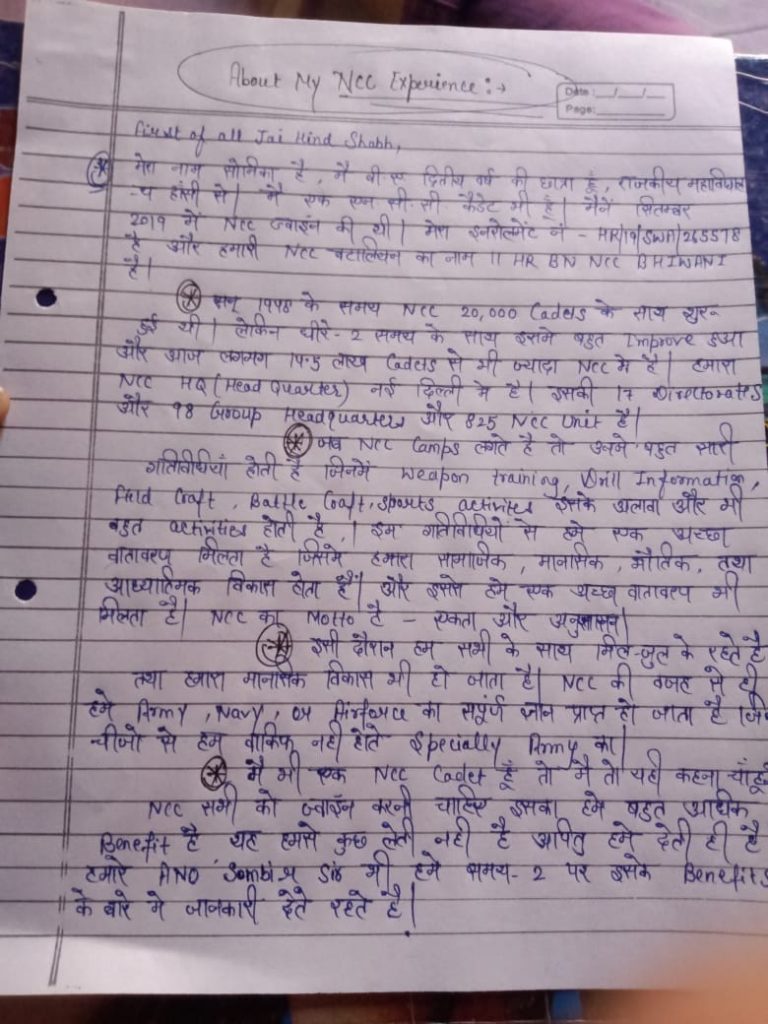 About My NCC Experience :→
Date : __/__/__
Page: ______
First of all Jai Hind Shabh,
मेरा नाम सोमिका है, मै बी ए द्वितीय वर्ष की छात्रा हूँ, राजकीय महाविद्याल
-य हांसी से। मै एक एन सी.सी कैडेट भी हूँ। मैनें सितम्बर
2019 में NCC ज्वाइंन की थी। मेरा इनरोलमेंट नं - HR/19/SWA/265578
है और हमारी NCC बटालियन का नाम 11 HR BN NCC BHIWANI
है।
सन् 1948 के समय NCC 20,000 Cadets के साथ शुरू
हुई थी। लेकिन धीरे-2 समय के साथ इसमे बहुत Improve हुआ
और आज लगभग 14.5 लाख Cadets से भी ज्यादा NCC मे है। हमारा
NCC HQ (Head Quarter) नई दिल्ली मे है। इसकी 17 Directorates
और 98 Group Headquarters और 825 NCC Unit है।
जब NCC Camps लगते है तो उनमे बहुत सारी
गतिविधियाँ होती है जिनमें Weapon training, Drill Information,
Field Craft, Battle Craft, sports activities इसके अलावा और भी
बहुत activities होती है,। इम गतिविधियों से हमे एक अच्छा
वातावरण मिलता है जिसमे हमारा सामाजिक, मानसिक, भौतिक, तथा
आध्यात्मिक विकास होता हैं। और इससे हमे एक अच्छा वातावरण भी
मिलता है। NCC का Motto है - एकता और अनुशासन।
इसी दौरान हम सभी के साथ मिल-जुल के रहते है
तथा हमारा मानसिक विकास भी हो जाता है। NCC की वजह से ही
हमे Army, Navy, or Airforce का संपूर्ण ज्ञान प्राप्त हो जाता है जिन
चीजो से हम वाकिफ नही होते Specially Army का।
मै भी एक NCC Cadet हूँ तो मै तो यही कहना चाहूँ
NCC सभी को ज्वाइंन करनी चाहिए इसका हमे बहुत अधिक
Benefit है यह हमसे कुछ लेती नही है अपितु हमे देती ही है
हमारे ANO Sombir Sir भी हमे समय-2 पर इसके Benefits
के बारे मे जानकारी देते रहते है।